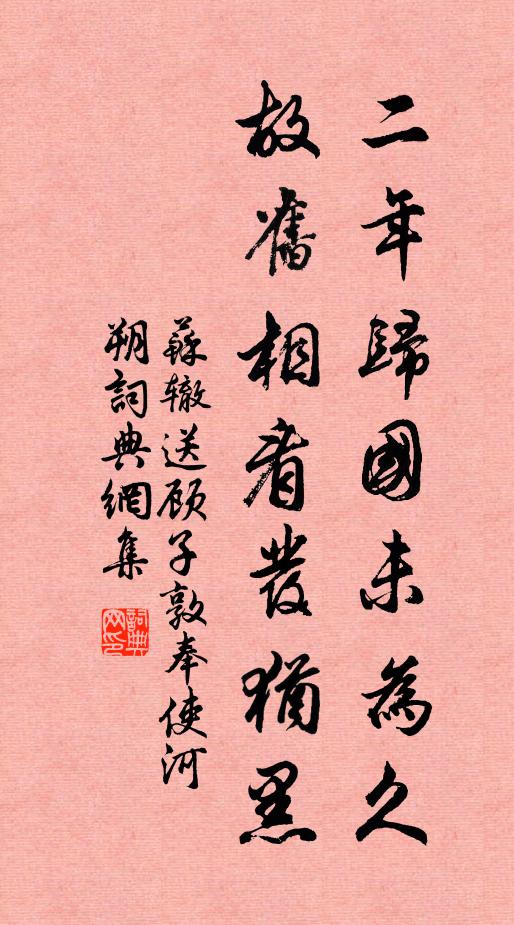 二年歸國未為久
故舊相看發猶黑
蘇辙送顾子敦奉使河
朔詞典網集
詞典网印